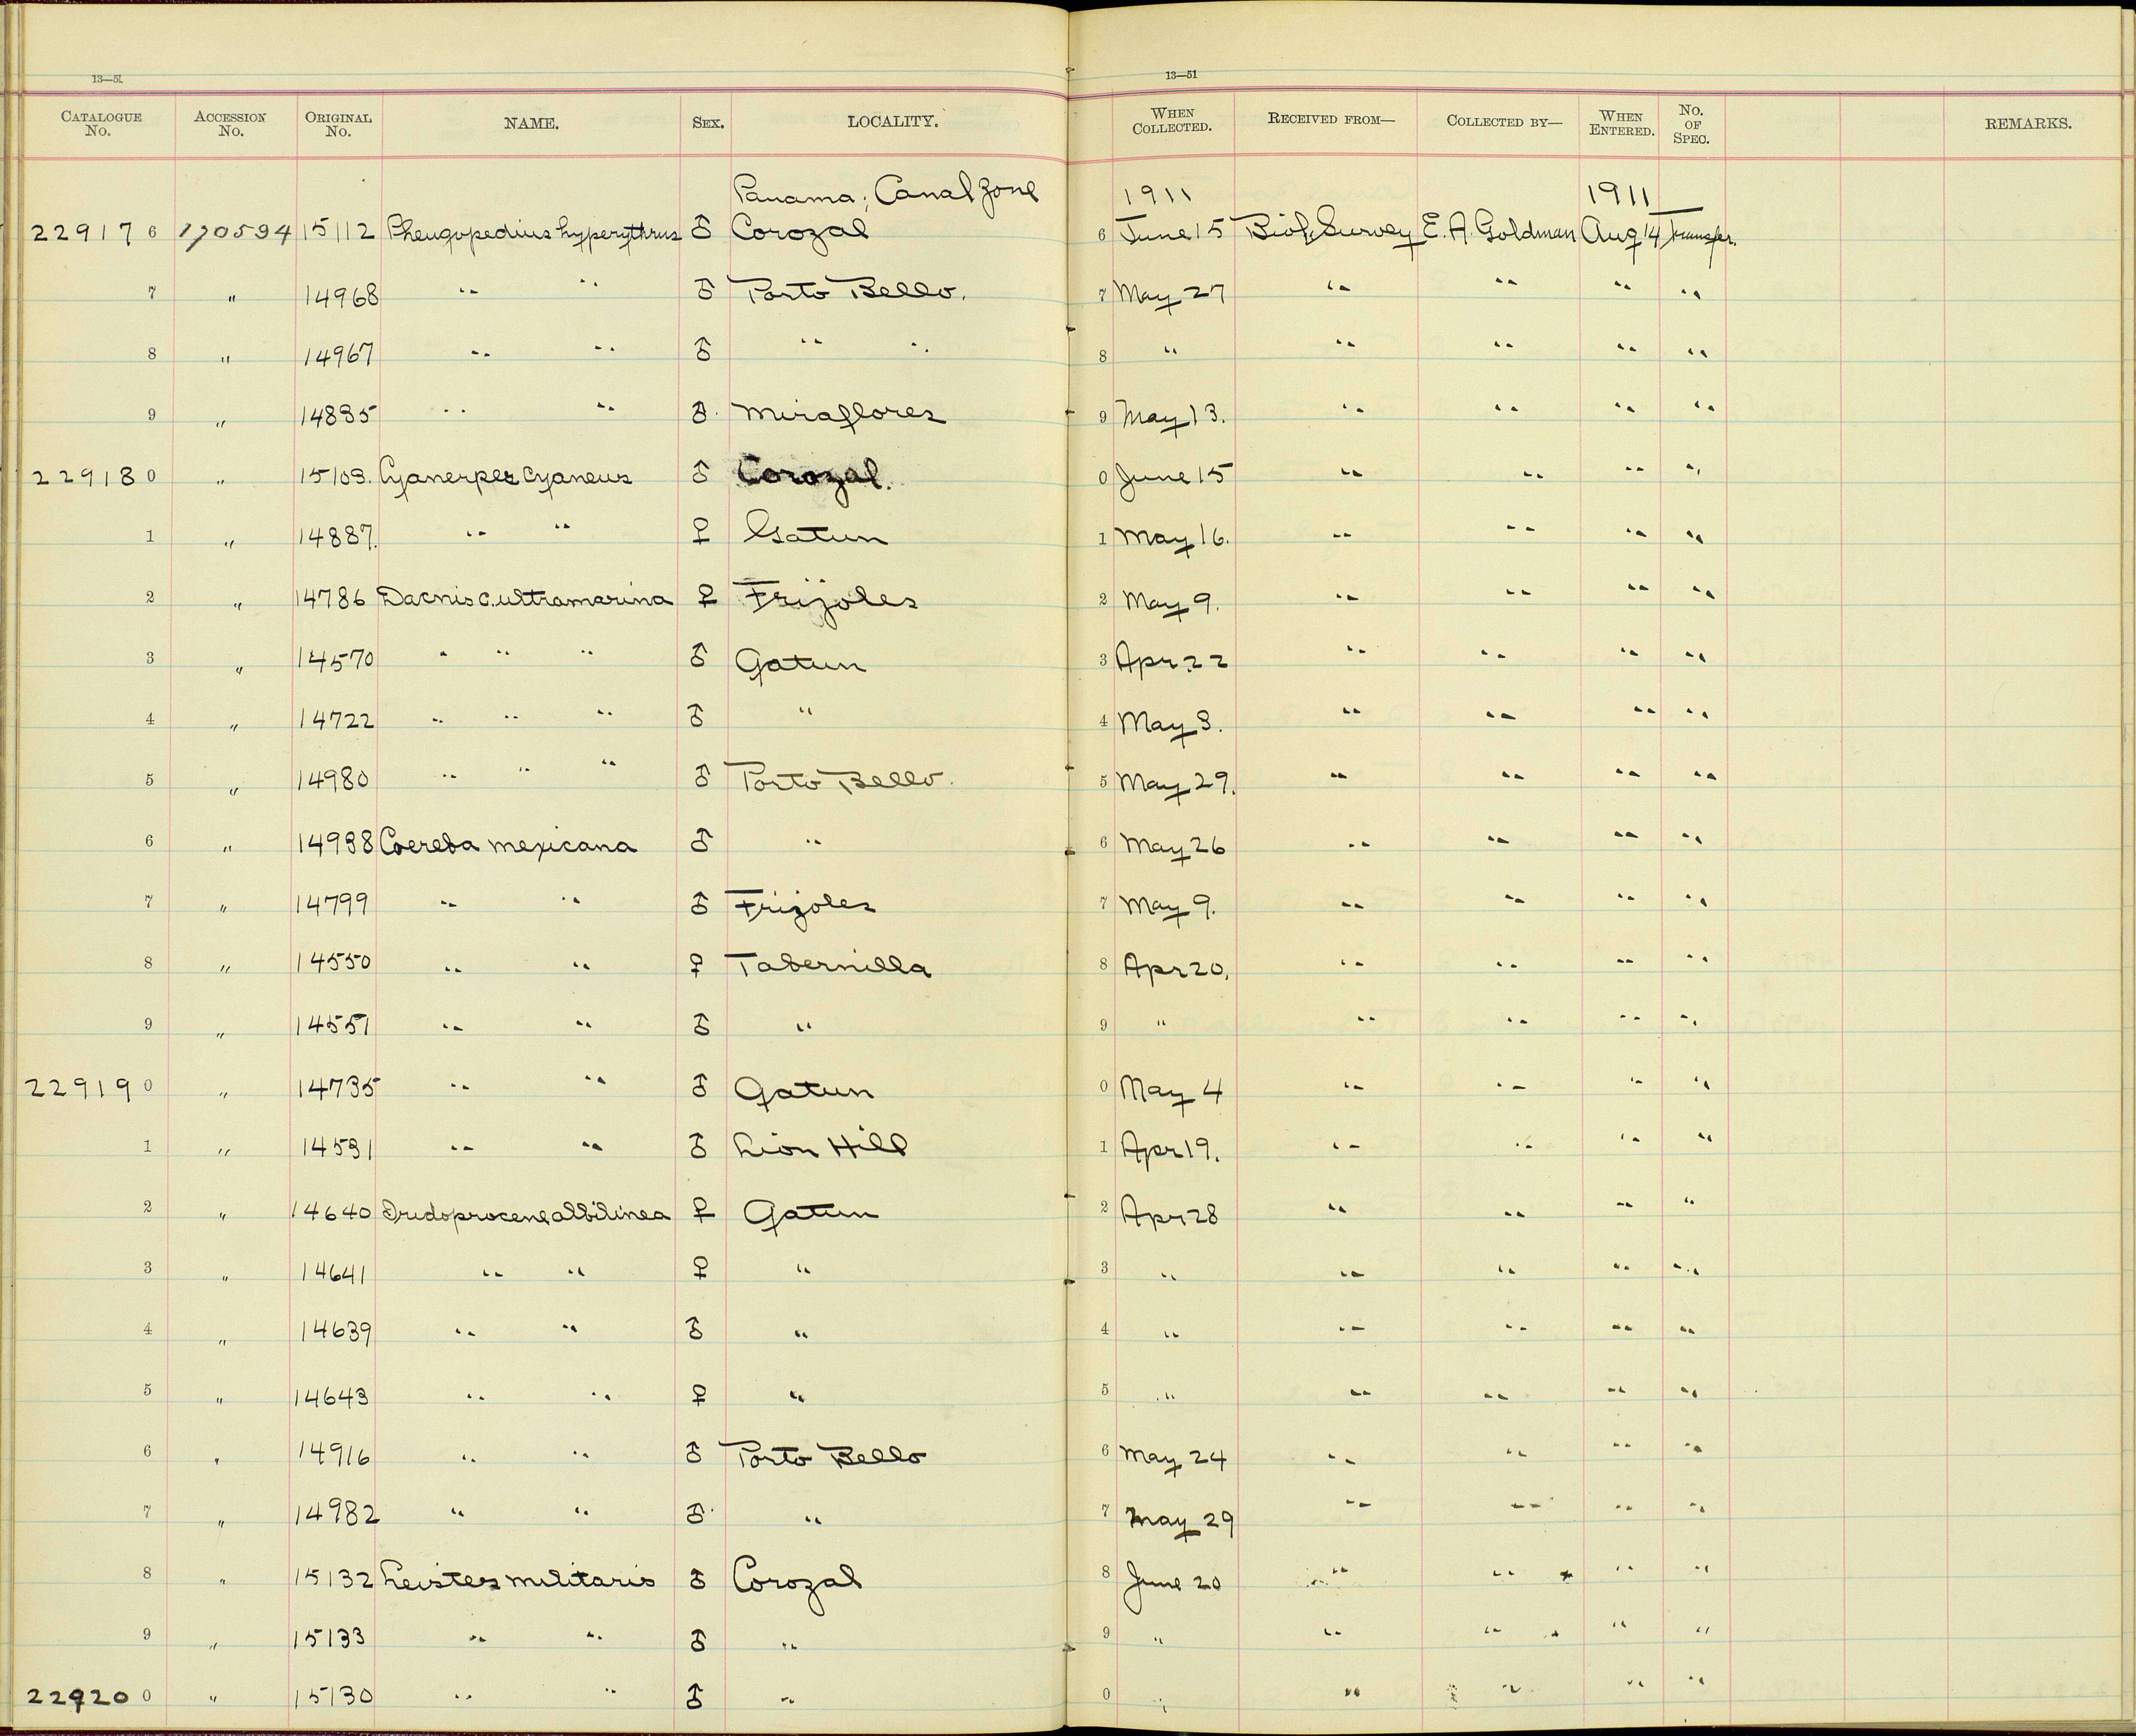 13—51 13—51
CATALOGUE No. ACCESSION No. ORIGINAL No. NAME. SEX. LOCALITY. WHEN COLLECTED. RECEIVED FROM— COLLECTED BY— WHEN ENTERED. No. OF SPEC. REMARKS.
Panama; Canal Zone 1911 1911
229176 170594 15112 Pheugopedius hyperythrus ♂ Corozal 6 June 15 Biol. Survey E. A. Goldman Aug 14 Transfer.
7 " 14968 " " ♂ Porto Bello. 7 May 27 " " " "
8 " 14967 " " ♂ " " 8 " " " " "
9 " 14835 " " ♂. Miraflores 9 May 13. " " " "
229180 " 15103. Cyanerpes cyaneus ♂ Corozal. 0 June 15 " " " "
1 " 14887. " " ♀ Gatun 1 May 16. " " " "
2 " 14786 Dacnis c. ultramarina ♀ Frijoles 2 May 9. " " " "
3 " 14570 " " " ♂ Gatun 3 Apr. 22 " " " "
4 " 14722 " " " ♂ " 4 May 3. " " " "
5 " 14980 " " " ♂ Porto Bello. 5 May 29. " " " "
6 " 14938 Coereba mexicana ♂ " 6 May 26 " " " "
7 " 14799 " " ♂ Frijoles 7 May 9. " " " "
8 " 14550 " " ♀ Tabernilla 8 Apr 20. " " " "
9 " 14551 " " ♂ " 9 " " " " "
229190 " 14735 " " ♂ Gatun 0 May 4 " " " "
1 " 14531 " " ♂ Lion Hill 1 Apr 19. " " " "
2 " 14640 Iridoprocene albilinea ♀ Gatun 2 Apr 28 " " " "
3 " 14641 " " ♀ " 3 " " " " "
4 " 14639 " " ♂ " 4 " " " " "
5 " 14643 " " ♀ " 5 " " " " "
6 " 14916 " " ♂ Porto Bello 6 May 24 " " " "
7 " 14982 " " ♂. " 7 May 29 " " " "
8 " 15132 Leistes militaris ♂ Corozal 8 June 20 " " " "
9 " 15133 " " ♂ " 9 " " " " "
229200 " 15130 " " ♂ " 0 " " " " "